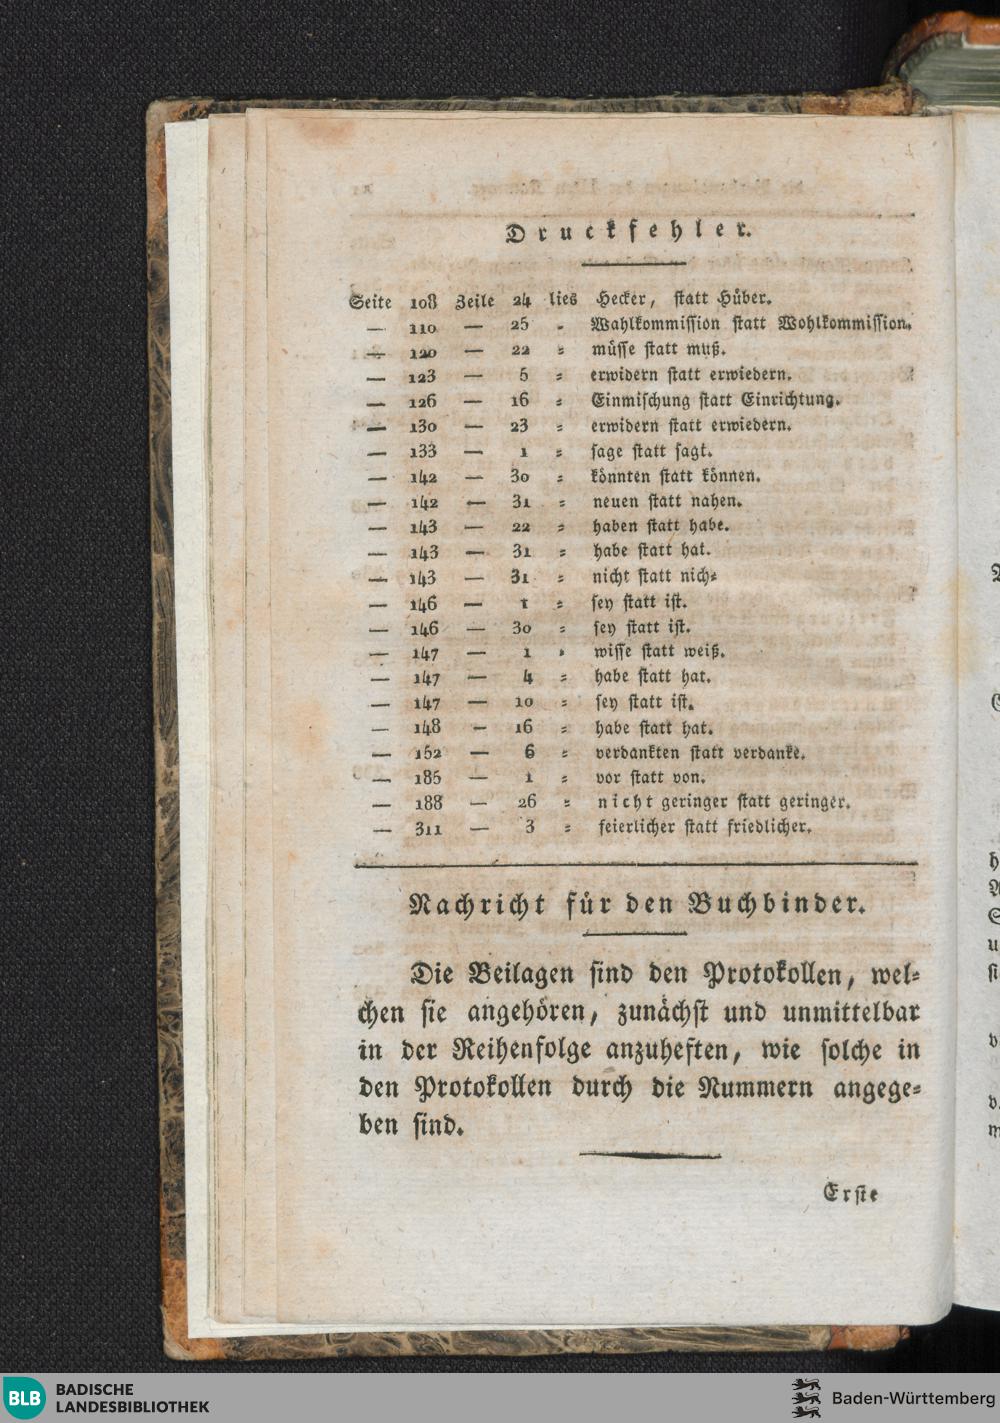 Druckfehler.
Seite 108 Zeile 24 lies Hecker, statt Hüber.
— 110 — 25 = Wahlkommission statt Wohlkommission.
— 120 — 22 = müsse statt muß.
— 123 — 5 = erwidern statt erwiedern.
— 126 — 16 = Einmischung statt Einrichtung.
— 130 — 23 = erwidern statt erwiedern.
— 133 — 1 = sage statt sagt.
— 142 — 30 = könnten statt können.
— 142 — 31 = neuen statt nahen.
— 143 — 22 = haben statt habe.
— 143 — 31 = habe statt hat.
— 143 — 31 = nicht statt nich=
— 146 — 1 = sey statt ist.
— 146 — 30 = sey statt ist.
— 147 — 1 = wisse statt weiß.
— 147 — 4 = habe statt hat.
— 147 — 10 = sey statt ist.
— 148 — 16 = habe statt hat.
— 152 — 6 = verdankten statt verdanke.
— 185 — 1 = vor statt von.
— 188 — 26 = nicht geringer statt geringer.
— 311 — 3 = feierlicher statt friedlicher.
Nachricht für den Buchbinder.
Die Beilagen sind den Protokollen, wel=
chen sie angehören, zunächst und unmittelbar
in der Reihenfolge anzuheften, wie solche in
den Protokollen durch die Nummern angege=
ben sind.
Erste
BLB BADISCHE
LANDESBIBLIOTHEK
Baden-Württemberg